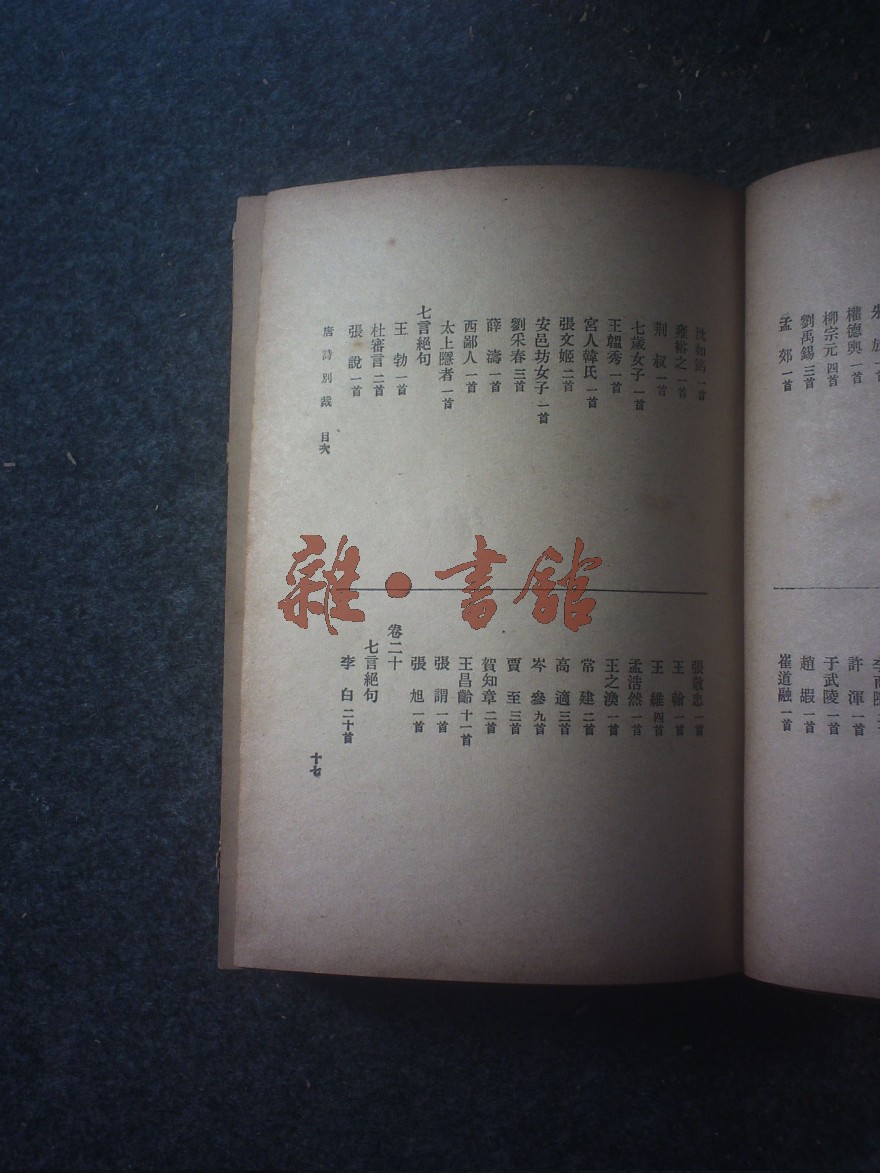 朱放
權德輿一首
柳宗元四首
劉禹錫三首
孟郊一首
許渾一首
于武陵一首
趙嘏一首
崔道融一首
沈如筠一首
雍裕之一首
荆叔一首
七歲女子一首
王韞秀一首
宮人韓氏一首
張文姬二首
安邑坊女子一首
劉采春三首
薛濤一首
西鄙人一首
太上隱者一首
七言絕句
王勃一首
杜審言二首
張說一首
張敬忠一首
王翰一首
王維四首
孟浩然一首
王之渙一首
常建二首
高適三首
岑參九首
賈至三首
賀知章二首
王昌齡十一首
張謂一首
張旭一首
卷二十
七言絕句
李白二十首
唐詩別裁 目次
十七
雜·書館